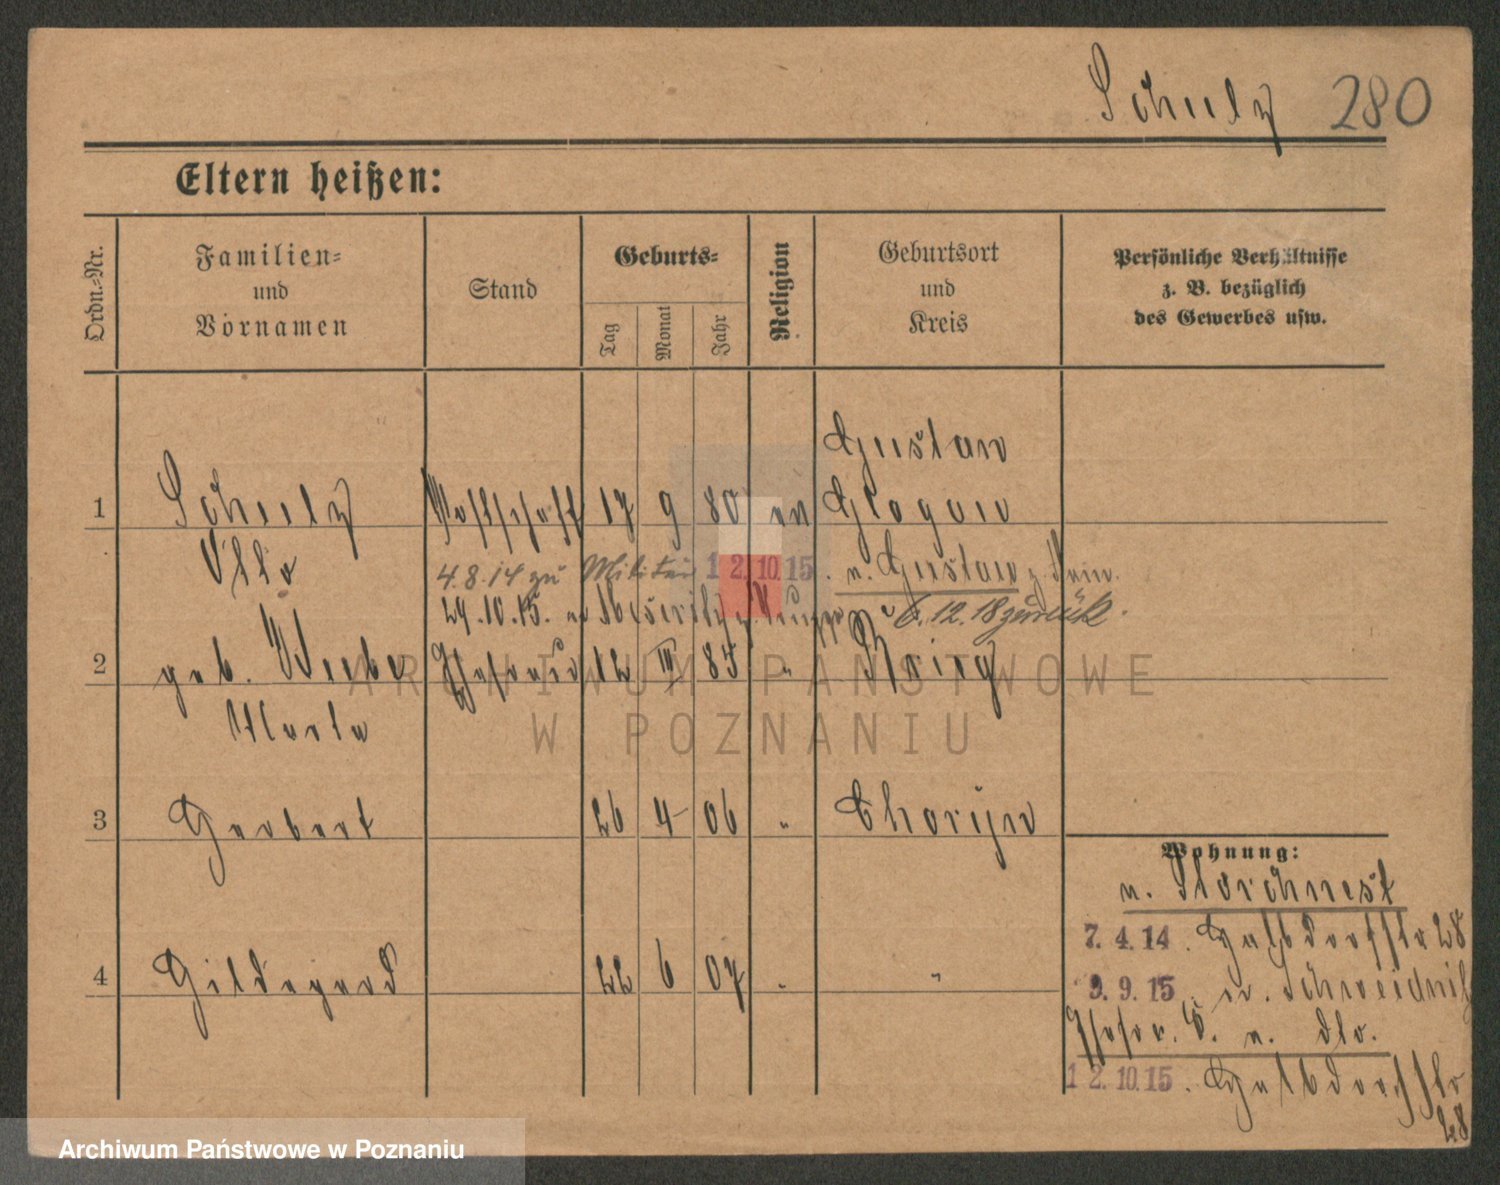 Schulz 280
Eltern heißen:
Ordn.-Nr.
Familien-
und
Vornamen
Stand
Geburts-
Tag
Monat
Jahr
Religion
Geburtsort
und
Kreis
Persönliche Verhältnisse
z. B. bezüglich
des Gewerbes usw.
Gustav
1 Schulz 17 9 80 ev Glogau
Otto 4.8.14 zu Militär 12.10.15. v. Gustav
29.10.15. 6.12.18 zurück.
2 geb. Weebe Ehefrau 12 III 85 "
Marta
3 Herbert 26 4 06 " Choryn
4 Hildegard 22 6 07 " "
Wohnung:
v. Storchnest
7. 4. 14. 28
9. 9. 15. n. Schweidnitz
Ehefr. v. dto.
12. 10. 15.
28
ARCHIWUM PAŃSTWOWE
W POZNANIU
Archiwum Państwowe w Poznaniu